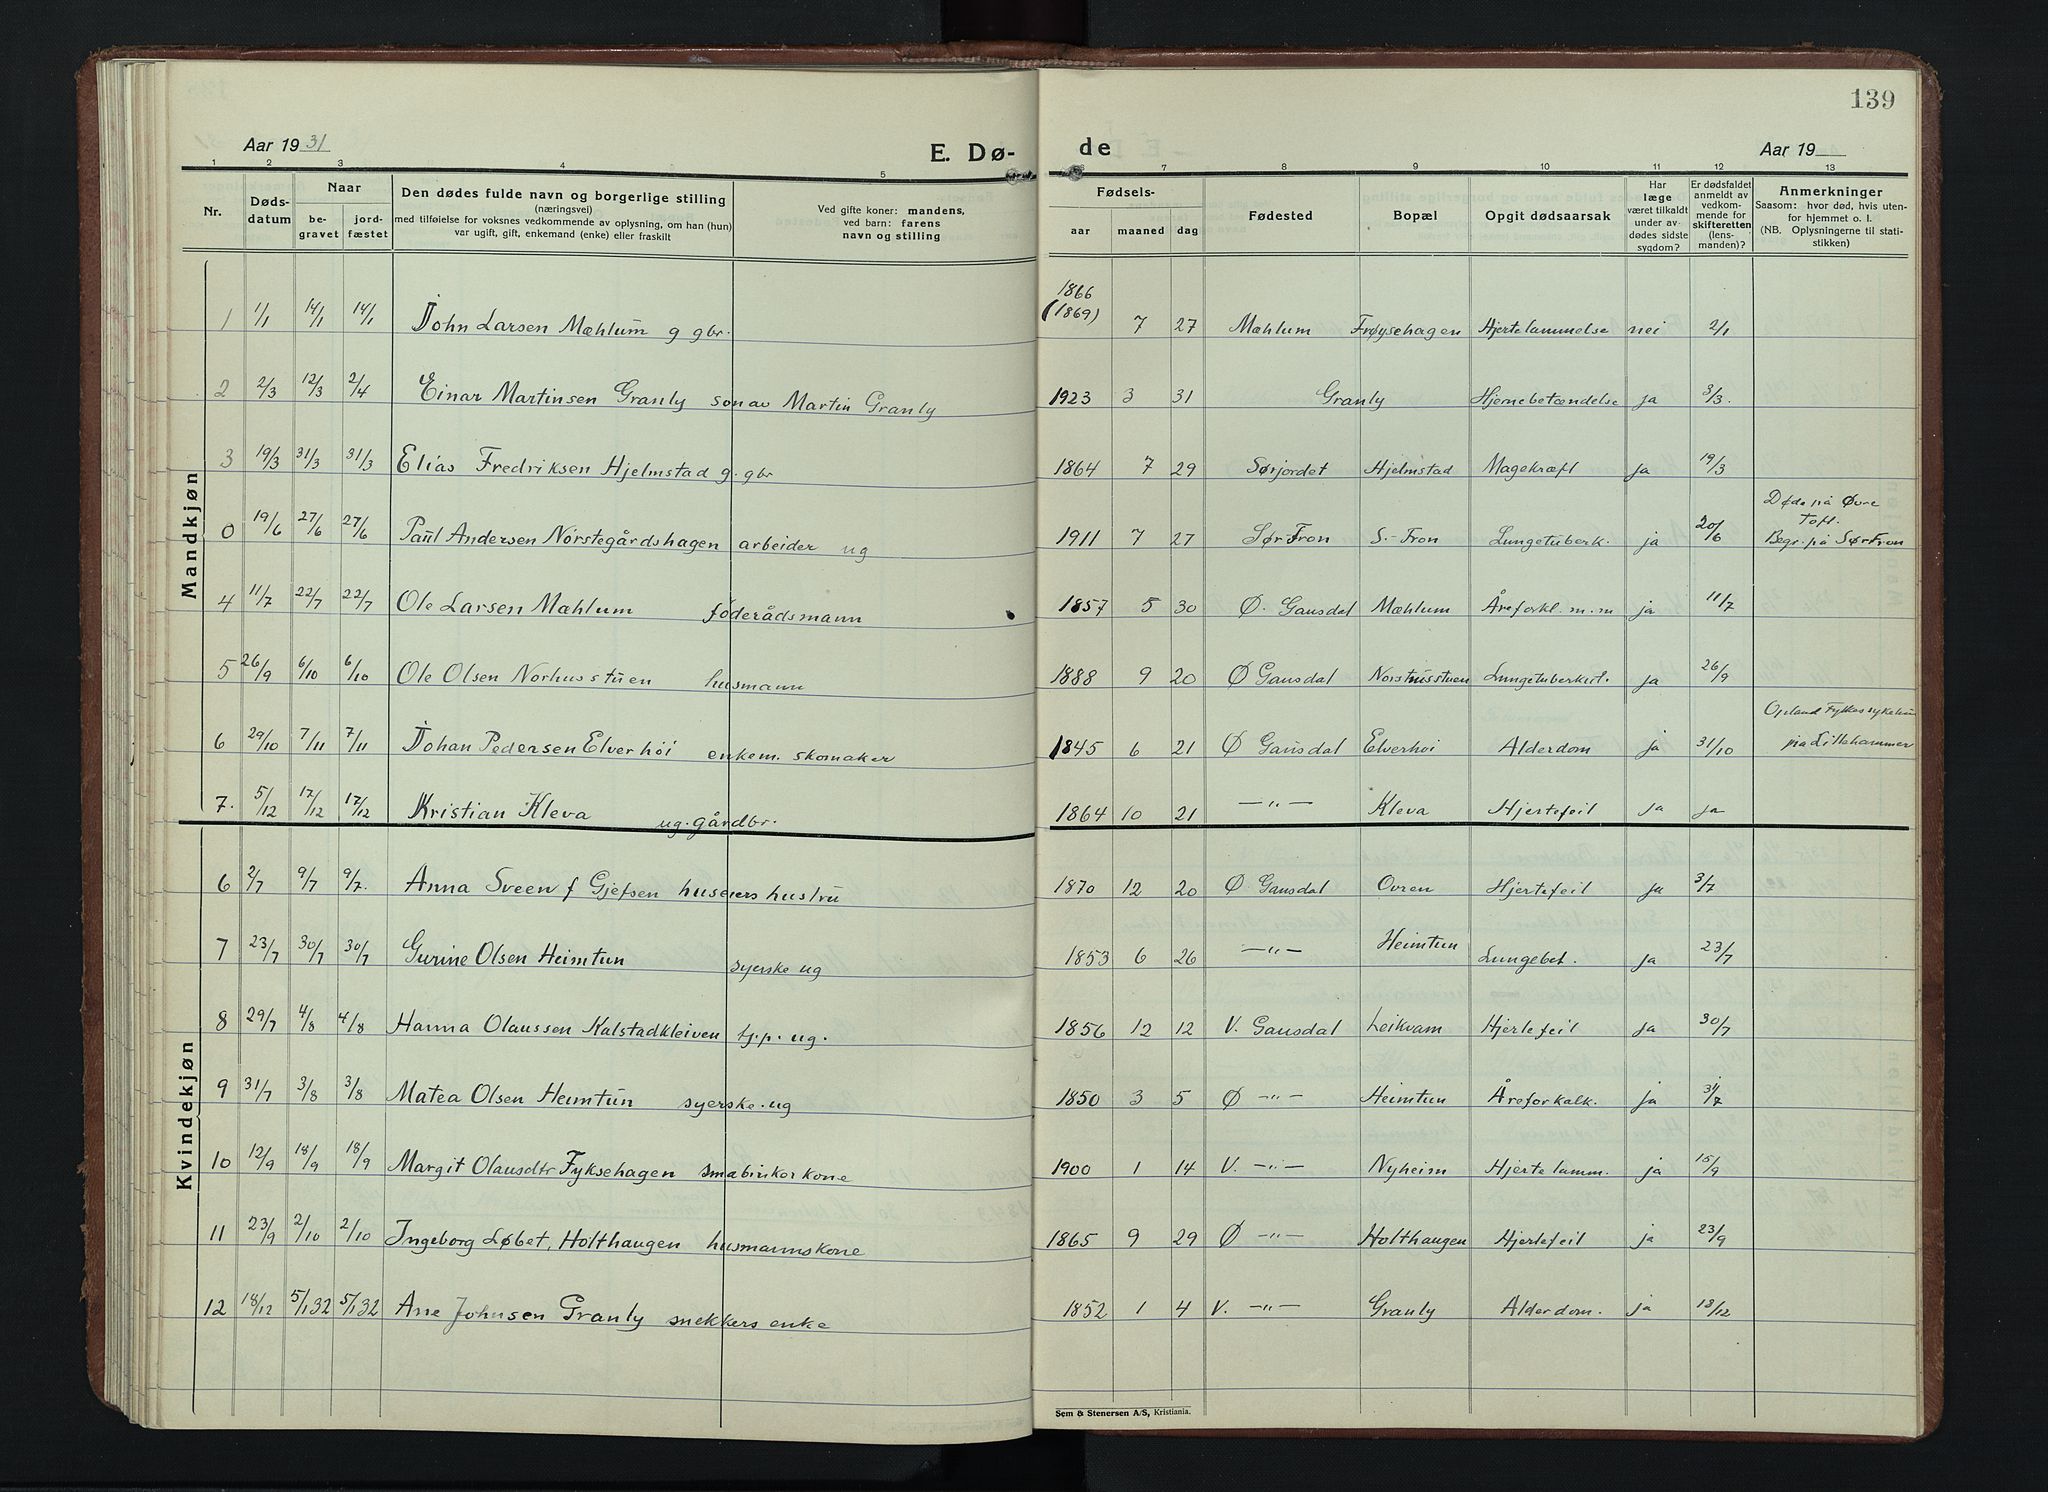 139
Aar 1931 E. Dø- de Aar 19
1 2 3 4 5 6 7 8 9 10 11 12 13
Nr. Døds-datum Naar be-gravet jord-fæstet Den dødes fulde navn og borgerlige stilling (næringsvei) med tilføielse for voksnes vedkommende av oplysning, om han (hun) var ugift, gift, enkemand (enke) eller fraskilt Ved gifte koner: mandens, ved barn: farens navn og stilling Fødsels- aar maaned dag Fødested Bopæl Opgit dødsaarsak Har læge været tilkaldt under av-dødes sidste sygdom? Er dødsfaldet anmeldt av vedkom-mende for skifteretten (lens-manden)? Anmerkninger Saasom: hvor død, hvis uten-for hjemmet o. l. (NB. Oplysningerne til stati-stikken)
Mandkjøn
1 1/1 14/1 14/1 John Larsen Mæhlum g gbr. 1866 (1869) 7 27 Mæhlum Frøysehagen Hjertelammelse nei 2/1
2 2/3 12/3 2/4 Einar Martinsen Granly son av Martin Granly 1923 3 31 Granly Hjernebetændelse ja 3/3.
3 19/3 31/3 31/3 Elias Fredriksen Hjelmstad g. gbr 1864 7 29 Sørjordet Hjelmstad Magekræft ja 19/3
0 19/6 27/6 27/6 Paul Andersen Norstegårdshagen arbeider ug 1911 7 27 Sør Fron S.-Fron Lungetuberk. ja 20/6 Døde på Øvre Toft. Begr. på Sør Fron
4 11/7 22/7 22/7 Ole Larsen Mæhlum föderådsmann 1857 5 30 Ø. Gausdal Mæhlum Åreforkl. m.m ja 11/7
5 26/9 6/10 6/10 Ole Olsen Norhusstuen husmann 1888 9 20 Ø Gausdal Norshusstuen Lungetuberkul. ja 26/9
6 29/10 7/11 7/11 Johan Pedersen Elverhöi enkem. skomaker 1845 6 21 Ø Gausdal Elverhöi Alderdom ja 31/10 Opland Fylkessykehus på Lillehammer
7. 5/12 17/12 17/12 Kristian Kleva ug. gårdbr. 1864 10 21 —"— Kleva Hjertefeil ja ja
Kvindekjøn
6 2/7 9/7 9/7. Anna Sveen f Gjefsen huseiers hustru 1870 12 20 Ø Gausdal Ovren Hjertefeil ja 3/7
7 23/7 30/7 30/7 Gurine Olsen Heimtun syerske ug 1853 6 26 —"— Heimtun Lungebet. ja 23/7
8 29/7 4/8 4/8 Hanna Olaussen Kalstadkleiven tj.p. ug. 1856 12 12 V. Gausdal Leikvam Hjertefeil ja 30/7
9 31/7 3/8 3/8 Matea Olsen Heimtun syerske. ug 1850 3 5 Ø —"— Heimtun Åreforkalk. ja 31/7
10 12/9 18/9 18/9 Margit Olausdtr Fyksehagen småbrukerkone 1900 1 14 V. —"— Nyheim Hjertelamm. ja 15/9
11 23/9 2/10 2/10 Ingeborg Løbet, Holthaugen husmannskone 1865 9 29 Ø —"— Holthaugen Hjertefeil ja 23/9
12 18/12 5/1 32 5/1 32 Ane Johnsen Granly snekkers enke 1852 1 4 V. —"— Granly Alderdom. ja 18/12
Sem & Stenersen A/S, Kristiania.